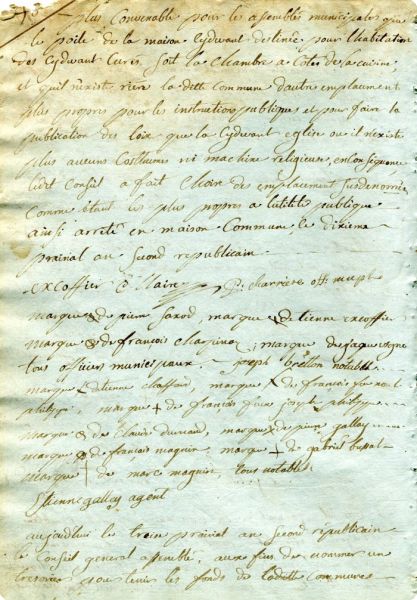 plus convenable pour les assemblés municipales que
le poile de la maison Cydevant destinée pour l'habitation
des Cydevant Curés, soit la Chambre a Cotés de la cuisine
et quil n'existe riere la ditte commune d'autre emplacement
plus propres pour les instructions publiques et pour faire la
publication des loix que la Cydevant eglise ou il n'existe
plus aucuns Costhumes ni machine religieuse, en Consequence
ledit Conseil a fait Choix des emplacement susdenommé
Comme étant les plus propres a lutilité publique
ainsi arreté en maison Commune le dixieme
prairial an second republicain
excoffier Maire P: charriere off mupl
marque de pierre saxod, marque detienne excoffier
marque de françois Chapina marque de jaque
tous officiers municipaux. joseph bréllon notable
marque détienne chaffair, marque de françois feu noel
philippe, marque de françois feu joseph philippe
marque de Claude durand, marque de pierre gallay
marque de francais magnin, marque de gabriel bussat
marque de marc magnin, tous notables
Etienne gallay agent
aujourdhui les treise prairial an second républicain
le Conseil general assemblé, aux fins de nommer un
tresorier pour tenir les fonds de ladette commune